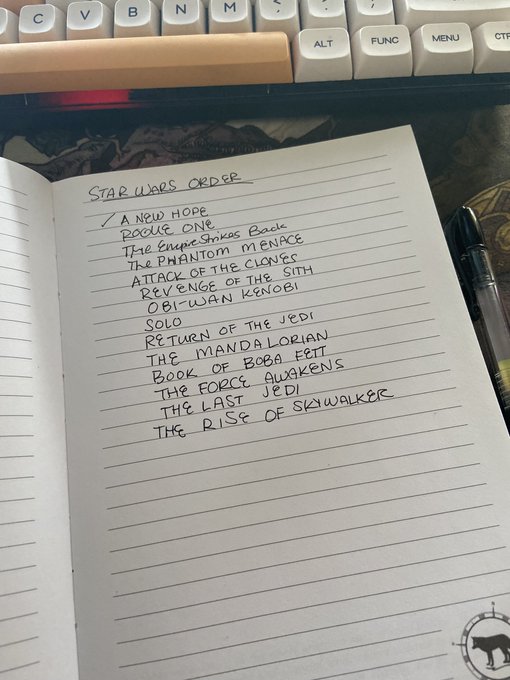 C V B N M < > ?
, . /
ALT FUNC MENU CTR
STAR WARS ORDER
✓ A NEW HOPE
ROGUE ONE
The Empire Strikes Back
The PHANTOM MENACE
ATTACK OF THE CLONES
REVENGE OF THE SITH
OBI-WAN KENOBI
SOLO
RETURN OF THE JEDI
THE MANDALORIAN
BOOK OF BOBA FETT
THE FORCE AWAKENS
THE LAST JEDI
THE RISE OF SKYWALKER